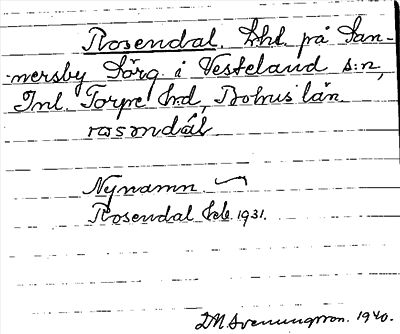 Rosendal. Lht. på San-
nersby Sörg. i Vesteland s:n,
Inl. Torpe hd, Bohus län.
rosəndāl
Nynamn.
Rosendal hb. 1931.
D.M. Svenungsson. 1940.